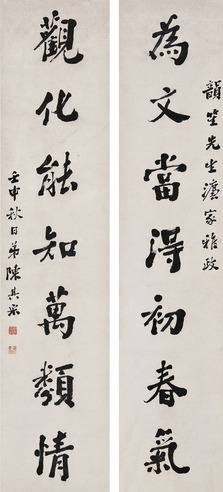 韻笙先生濂家雅政
為文當得初春氣
觀化能知萬類情
壬申秋日弟陳其采